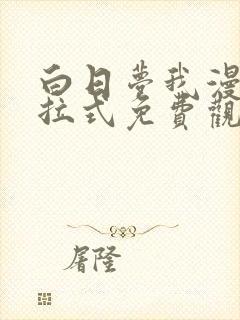 白日夢我漫
拉式免費觀
屠隆